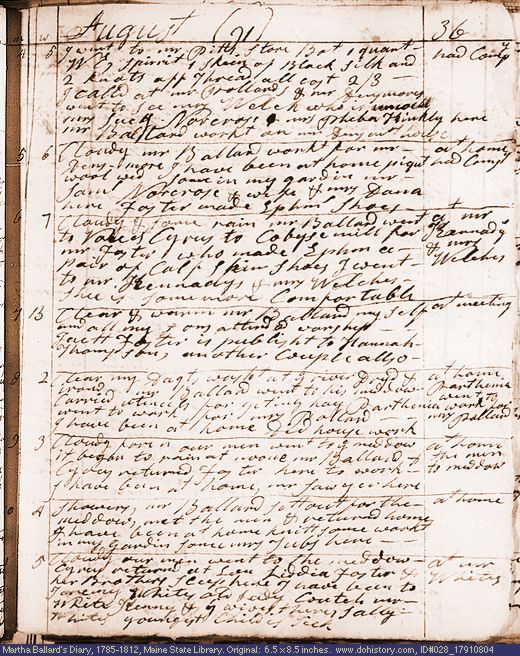 August (21) 36
4 5 I went to mr Pitts Store Bot 1 quart had Comp
W I Spirrit 1 Skein of Black Silk and
2 knots off Thread all cost 2/3
I calld at mr Pollards & mr Densmores
went to see mrs Welch who is unwell
mrs Suck Norcross & mrs Pheba Hinkly here
mr Ballard workt on mr house
5 6 Cloudy mr Ballard workt for mr at home
Densmore I have been at home had Comp
wool wed some in my garden mr
Sam Norcross & wife & mrs Dana
here Foster made Ephm Shoes
6 7 Cloudy & some rain mr Ballard went at mr
to Cyrus to mill for Kennadys
mr Foster who made Ephm a & mrs
pair of Calf Skin Shoes I went Welches
to mr Kennadys & mrs Welches
Shee is some more Comfortable
7 B Clear & warm mr Ballard my self at meeting
and all my Sons attend worship
Foster is publisht to Hannah
another Couple allso
8 2 Clear my Dagts washt at home
Parthenia
mr Ballard went to his meddow went to
went to work for mrs Pollard work for
I have been at home did house work mrs Pollard
9 3 Cloudy forn our men went to meddow at home
it began to rain at noone mr Ballard & the men
Cyrus returned Foster here to work to meddow
I have been at home, mr Sawyer here
4 Showery, mr Ballard sett out for the at home
meddow, met the men & returned home
I have been at home knit some workt
in my gardin some my here
5 our men went to the meddow at mr
Cyrus returnd at Foster & Whites
her Brothers Sleep here I have been to
Jeremy Whites old Lady Coutch mr
White Jenny & wife there Sally
Whites youngest Child is Sick
Martha Ballard's Diary, 1785-1812, Maine State Library. Original: 6.5 x 8.5 inches. www.dohistory.com, ID#028_17910804